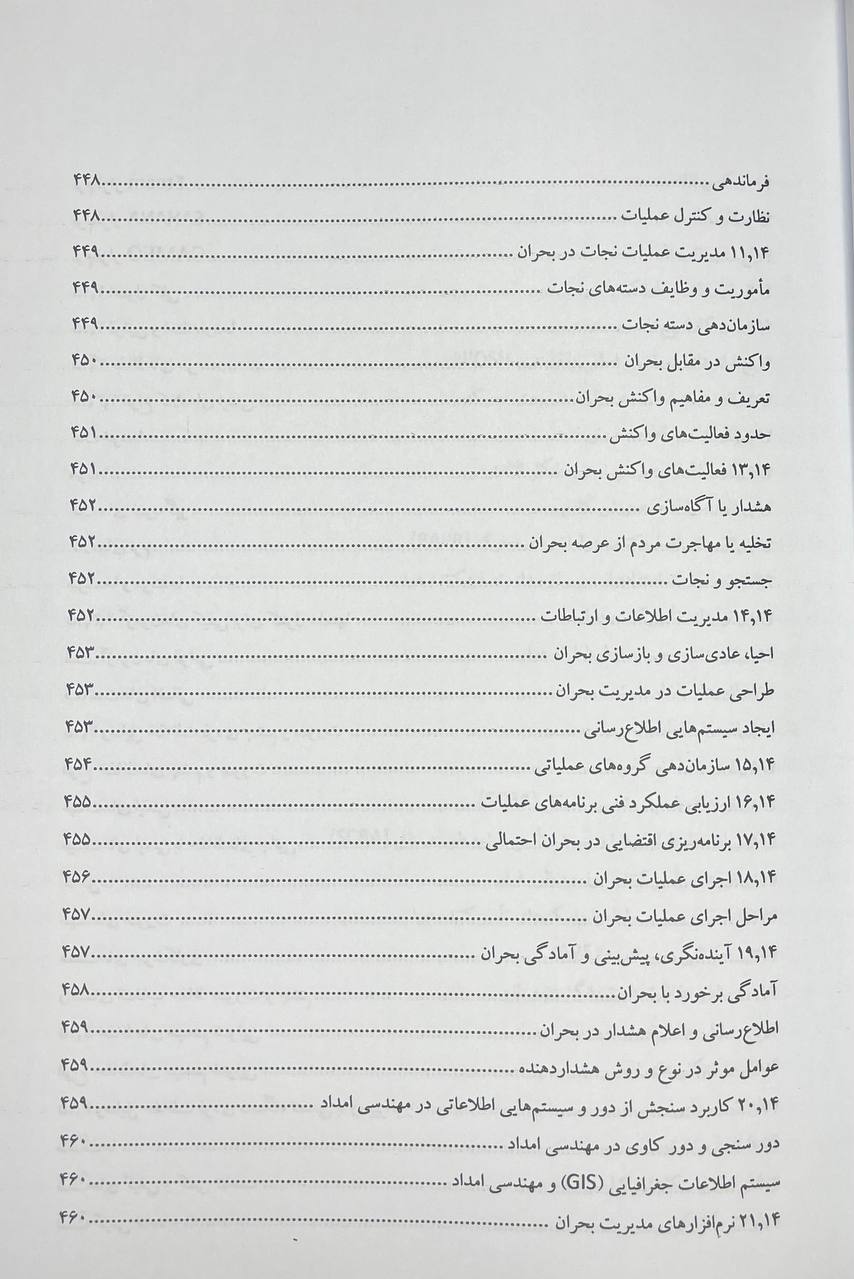 فرماندهی....................۴۴۸
نظارت و کنترل عملیات....................۴۴۸
۱۱,۱۴ مدیریت عملیات نجات در بحران....................۴۴۹
مأموریت و وظایف دسته‌های نجات....................۴۴۹
سازمان‌دهی دسته نجات....................۴۴۹
واکنش در مقابل بحران....................۴۵۰
تعریف و مفاهیم واکنش بحران....................۴۵۰
حدود فعالیت‌های واکنش....................۴۵۱
۱۳,۱۴ فعالیت‌های واکنش بحران....................۴۵۱
هشدار یا آگاه‌سازی....................۴۵۲
تخلیه یا مهاجرت مردم از عرصه بحران....................۴۵۲
جستجو و نجات....................۴۵۲
۱۴,۱۴ مدیریت اطلاعات و ارتباطات....................۴۵۲
احیا، عادی‌سازی و بازسازی بحران....................۴۵۳
طراحی عملیات در مدیریت بحران....................۴۵۳
ایجاد سیستم‌هایی اطلاع‌رسانی....................۴۵۳
۱۵,۱۴ سازمان‌دهی گروه‌های عملیاتی....................۴۵۴
۱۶,۱۴ ارزیابی عملکرد فنی برنامه‌های عملیات....................۴۵۵
۱۷,۱۴ برنامه‌ریزی اقتضایی در بحران احتمالی....................۴۵۵
۱۸,۱۴ اجرای عملیات بحران....................۴۵۶
مراحل اجرای عملیات بحران....................۴۵۷
۱۹,۱۴ آینده‌نگری، پیش‌بینی و آمادگی بحران....................۴۵۷
آمادگی برخورد با بحران....................۴۵۸
اطلاع‌رسانی و اعلام هشدار در بحران....................۴۵۹
عوامل موثر در نوع و روش هشداردهنده....................۴۵۹
۲۰,۱۴ کاربرد سنجش از دور و سیستم‌هایی اطلاعاتی در مهندسی امداد....................۴۵۹
دور سنجی و دور کاوی در مهندسی امداد....................۴۶۰
سیستم اطلاعات جغرافیایی (GIS) و مهندسی امداد....................۴۶۰
۲۱,۱۴ نرم‌افزارهای مدیریت بحران....................۴۶۰